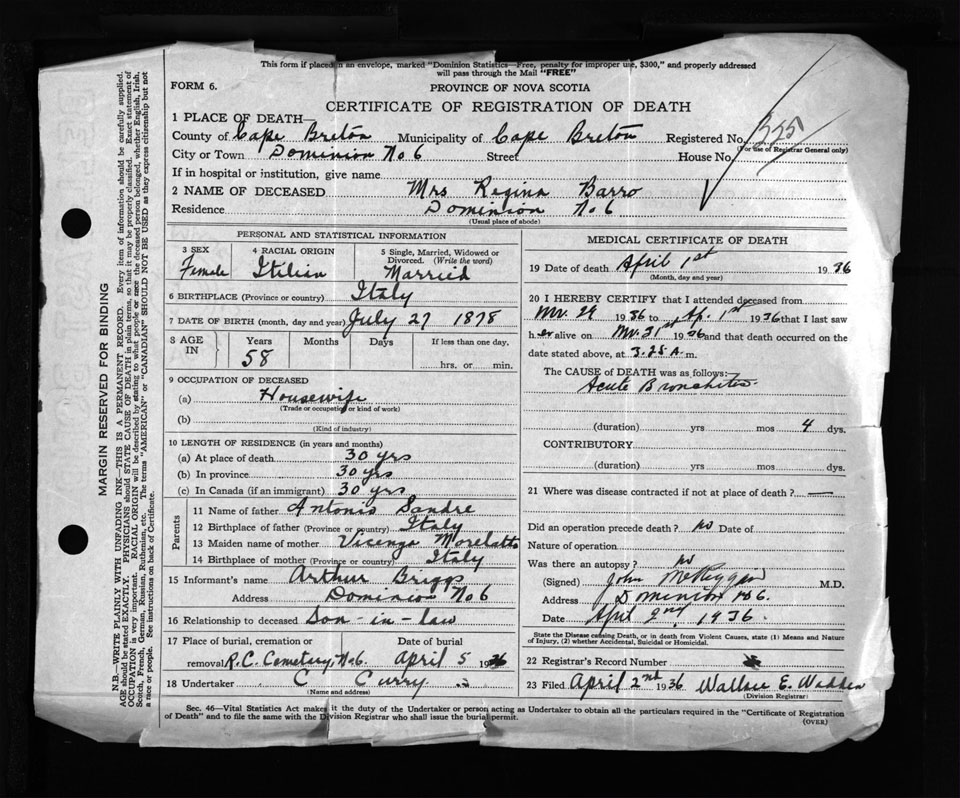 This form if placed in an envelope, marked "Dominion Statistics—Free, penalty for improper use, $300," and properly addressed
will pass through the Mail "FREE"
FORM 6.
PROVINCE OF NOVA SCOTIA
CERTIFICATE OF REGISTRATION OF DEATH
1 PLACE OF DEATH—
County of Cape Breton Municipality of Cape Breton Registered No.
(For use of Registrar General only)
City or Town Dominion No 6 Street House No.
If in hospital or institution, give name
2 NAME OF DECEASED Mrs Regina Barro
Residence Dominion No 6
(Usual place of abode)
PERSONAL AND STATISTICAL INFORMATION
3 SEX 4 RACIAL ORIGIN 5 Single, Married, Widowed or
Divorced. (Write the word)
Female Itilian Married
6 BIRTHPLACE (Province or country) Italy
7 DATE OF BIRTH (month, day and year) July 27 1878
8 AGE IN Years Months Days If less than one day.
58 hrs. or min.
9 OCCUPATION OF DECEASED
(a) Housewife
(Trade or occupation or kind of work)
(b)
(Kind of industry)
10 LENGTH OF RESIDENCE (in years and months)
(a) At place of death 30 yrs
(b) In province 30 yrs
(c) In Canada (if an immigrant) 30 yrs
Parents
11 Name of father Antonio Sandre
12 Birthplace of father (Province or country) Italy
13 Maiden name of mother Vicenza Morelatto
14 Birthplace of mother (Province or country) Italy
15 Informant's name Arthur Briggs
Address Dominion No 6
16 Relationship to deceased Son-in-law
17 Place of burial, cremation or Date of burial
removal R.C. Cemetery, No 6. April 5 1936
18 Undertaker C Curry
(Name and address)
MEDICAL CERTIFICATE OF DEATH
19 Date of death April 1st 1936
(Month, day and year)
20 I HEREBY CERTIFY that I attended deceased from
Mr. 29 1936 to Ap. 1st 1936 that I last saw
her alive on Mr. 31st 1936 and that death occurred on the
date stated above, at 3.25 A. m.
The CAUSE of DEATH was as follows:
Acute Bronchitis
(duration) yrs mos 4 dys.
CONTRIBUTORY
(duration) yrs. mos. dys.
21 Where was disease contracted if not at place of death? —
Did an operation precede death? no Date of
Nature of operation
Was there an autopsy? no
(Signed) John M.D.
Address Dominion No 6.
Date April 2nd, 1936
State the Disease causing Death, or in death from Violent Causes, state (1) Means and Nature
of Injury, (2) whether Accidental, Suicidal or Homicidal.
22 Registrar's Record Number
23 Filed April 2nd 1936 Wallace E. Wadden
(Division Registrar)
Sec. 46—Vital Statistics Act makes it the duty of the Undertaker or person acting as Undertaker to obtain all the particulars required in the "Certificate of Registration
of Death" and to file the same with the Division Registrar who shall issue the burial permit.
(OVER)
MARGIN RESERVED FOR BINDING
N.B.—WRITE PLAINLY WITH UNFADING INK—THIS IS A PERMANENT RECORD. Every item of information should be carefully supplied.
AGE should be stated EXACTLY. PHYSICIANS should STATE CAUSE OF DEATH in plain terms, so that it may be properly classified. Exact statement of
OCCUPATION is very important. RACIAL ORIGIN will be described by stating to what people or race the deceased person belonged, whether English, Irish,
Scotch, French, German, Russian, Ruthenian, etc. The terms "AMERICAN" or "CANADIAN" SHOULD NOT BE USED as they express citizenship but not
a race or people. See instructions on back of Certificate.